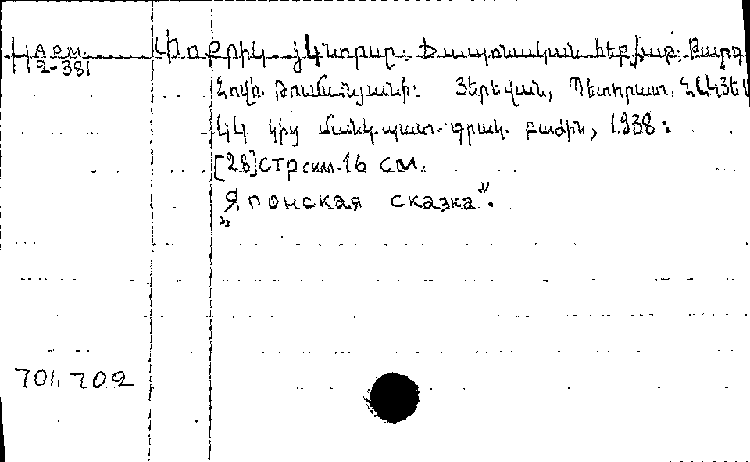 АРМ.
2-381
Փոքրիկ ձկնորսը. Ճապոնական հեքիաթ: Թարգ
Հովհ. Թումանյանի: Յերեվան, Պետհրատ,
կից մանկ-պատ. գրակ. բաժին, 1938:
[28] стр с илл. 16 см.
„Японская сказка".
701, 702